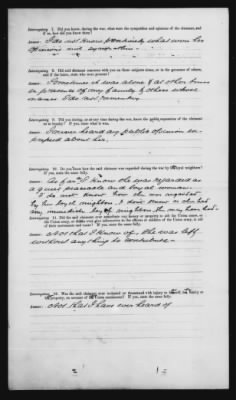 Interrogatory 7. Did you know, during the war, what were the sympathies and opinions of the claimant, and
if so, how did you know them?
Answer: I do not know positively what were her
opinions and sympathies.
Interrogatory 8. Did said claimant converse with you on these subjects alone, or in the presence of others,
and if the latter, state who were present?
Answer: Sometimes it was alone & at other times
in presence of my family & others whose
names I do not remember.
Interrogatory 9. Did you during, or at any time during the war, know the public reputation of the claimant
as to loyalty? If you know what it was.
Answer: I never heard any public opinion ex-
pressed about her.
Interrogatory 10. Do you know how the said claimant was regarded during the war by loyal neighbors?
If you, state the same fully.
Answer: As far as I know she was regarded as
a quiet peaceable and loyal woman.
I do not know how she was regarded
by her loyal neighbors. I don't know as she had
any immediate loyal neighbors
Interrogatory 11. Did the said claimant ever contribute any money or property to aid the United States, or
the Union army, or
Answer: Not that I know of, she was left
without anything to contribute.
Interrogatory 12. Was the said claimant ever molested or threatened with injury to
property, on account of Union sentiments? If you, state the same fully.
Answer: Not that I have ever heard of